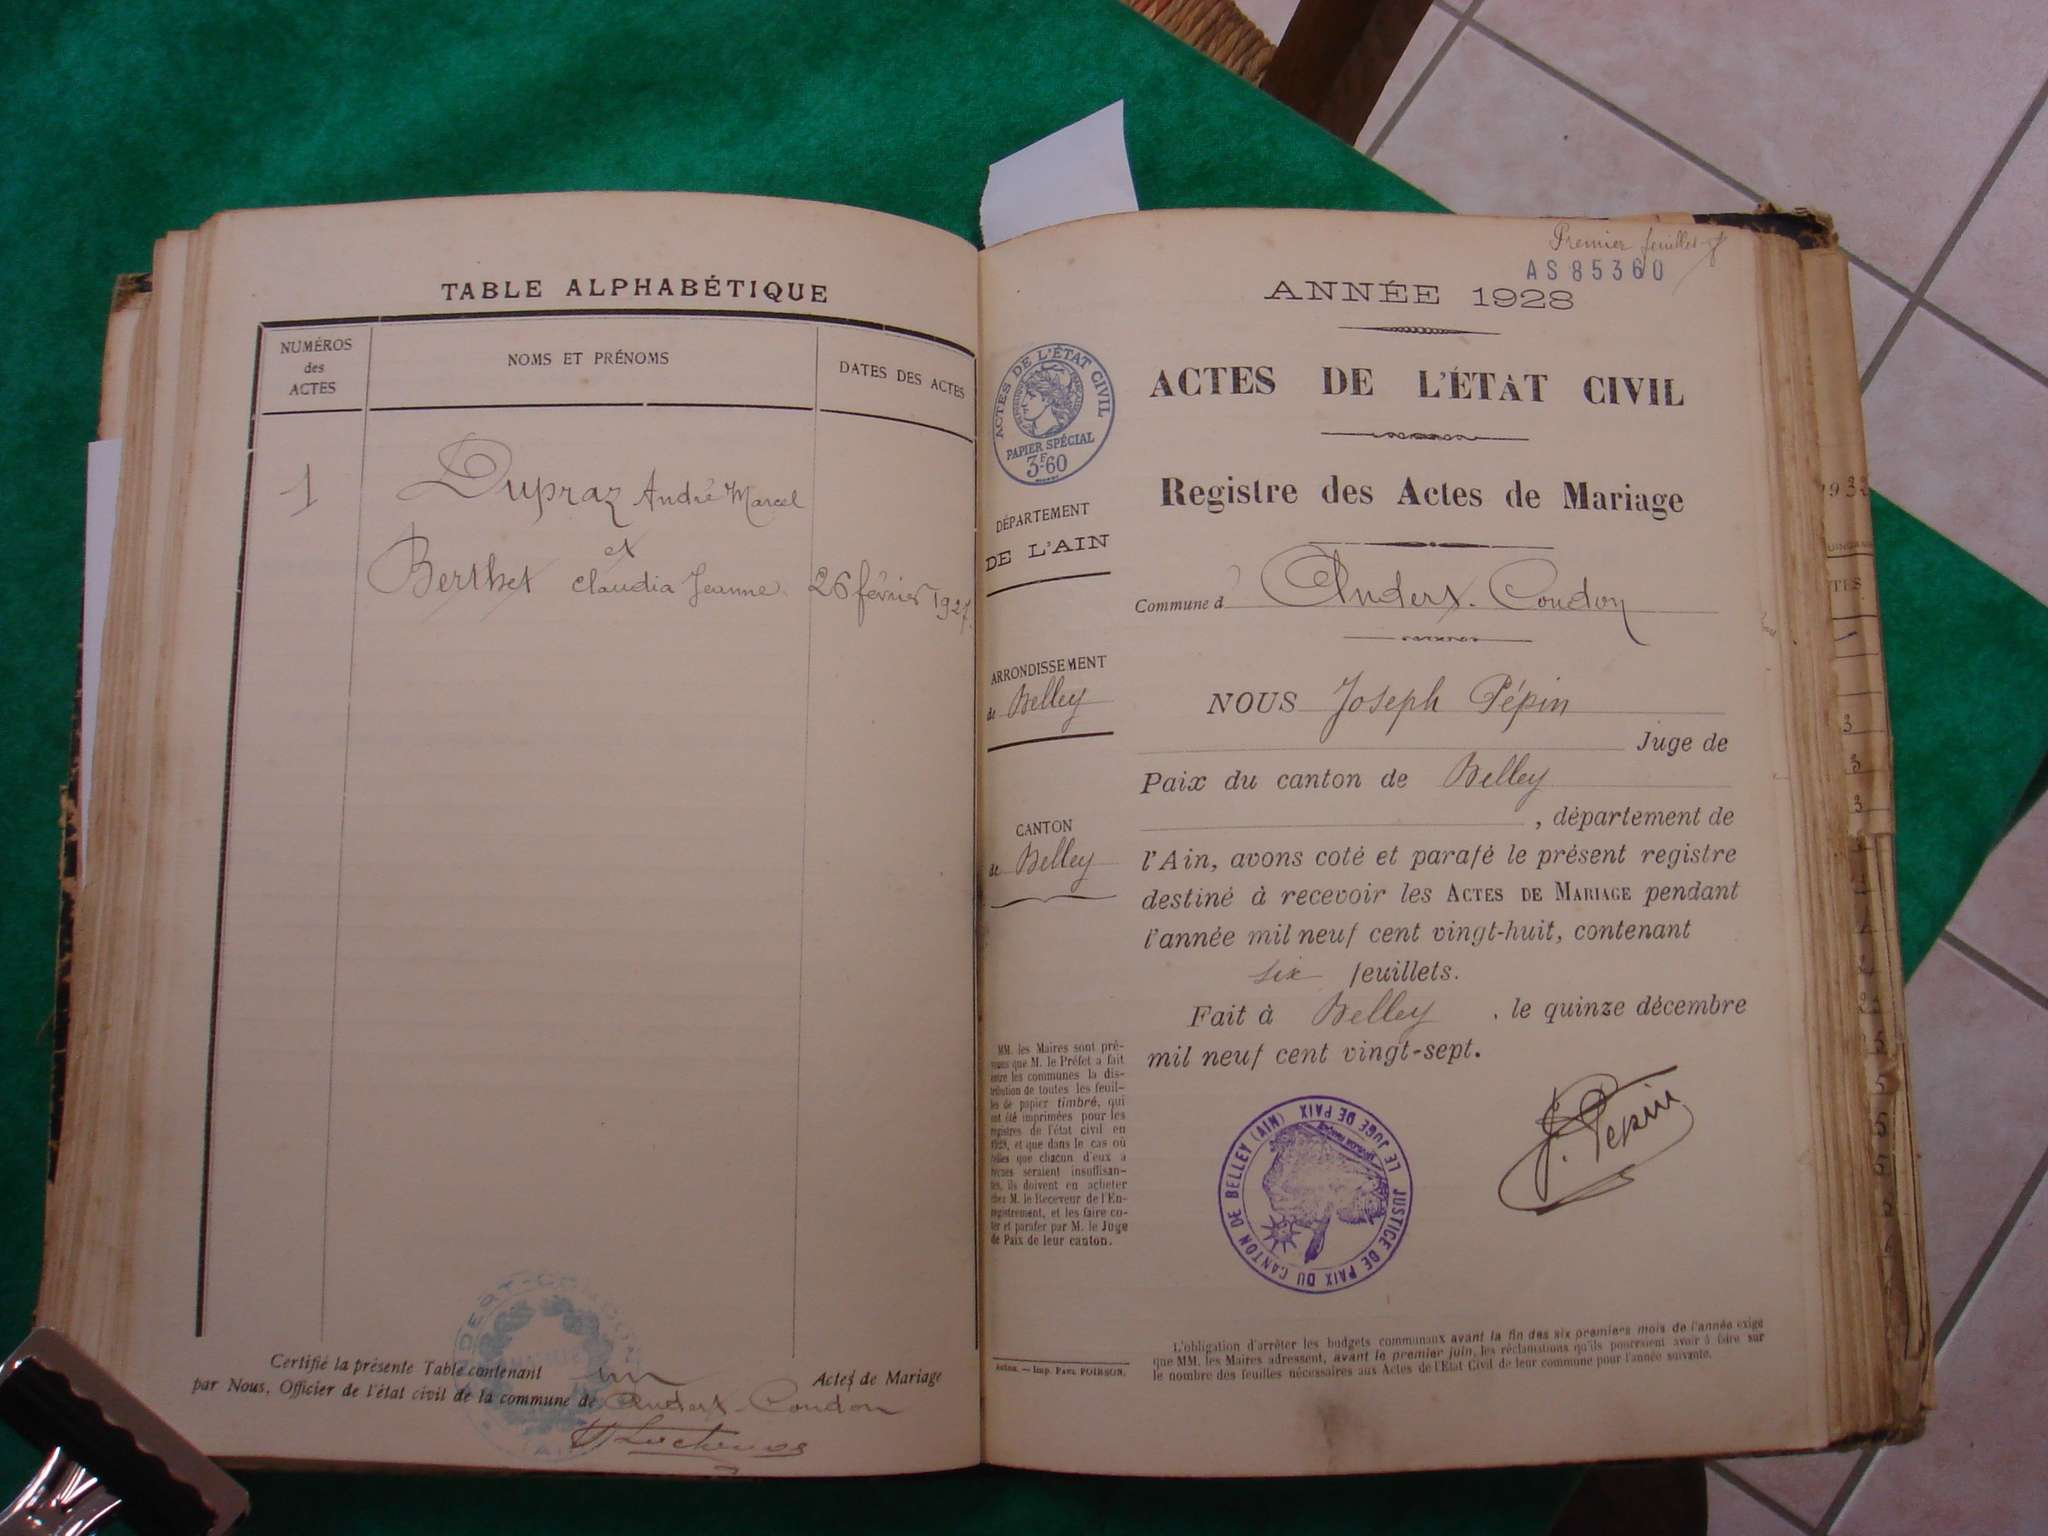 TABLE ALPHABÉTIQUE
NUMÉROS
des
ACTES
NOMS ET PRÉNOMS
DATES DES ACTES
1
Dupraz André Marcel
et
Berthet Claudia Jeanne
26 février 1927.
Certifié la présente Table contenant un Actes de Mariage
par Nous, Officier de l'état civil de la commune de Andert-Condon
Premier feuillet
AS 85360
ANNÉE 1928
ACTES DE L'ÉTAT CIVIL
PAPIER SPÉCIAL
3F.60
ACTES DE L'ÉTAT CIVIL
Registre des Actes de Mariage
DÉPARTEMENT
DE L'AIN
Commune d' Andert-Condon
ARRONDISSEMENT
de Belley
CANTON
de Belley
NOUS Joseph Pépin
Juge de
Paix du canton de Belley
, département de
l'Ain, avons coté et parafé le présent registre
destiné à recevoir les ACTES DE MARIAGE pendant
l'année mil neuf cent vingt-huit, contenant
six feuillets.
Fait à Belley, le quinze décembre
mil neuf cent vingt-sept.
J. Pepin
MM. les Maires sont pré-
venus que M. le Préfet a fait
entre les communes la dis-
tribution de toutes les feuil-
les de papier timbré, qui
ont été imprimées pour les
registres de l'état civil en
1928, et que dans le cas où
celles que chacun d'eux a
reçues seraient insuffisan-
tes, ils doivent en acheter
chez M. le Receveur de l'En-
registrement, et les faire co-
ter et parafer par M. le Juge
de Paix de leur canton.
JUSTICE DE PAIX DU CANTON DE BELLEY (AIN)
LE JUGE DE PAIX
Imp. PAUL POIRSON.
L'obligation d'arrêter les budgets communaux avant la fin des six premiers mois de l'année exige
que MM. les Maires adressent, avant le premier juin, les réclamations qu'ils pourraient avoir à faire sur
le nombre des feuilles nécessaires aux Actes de l'Etat Civil de leur commune pour l'année suivante.